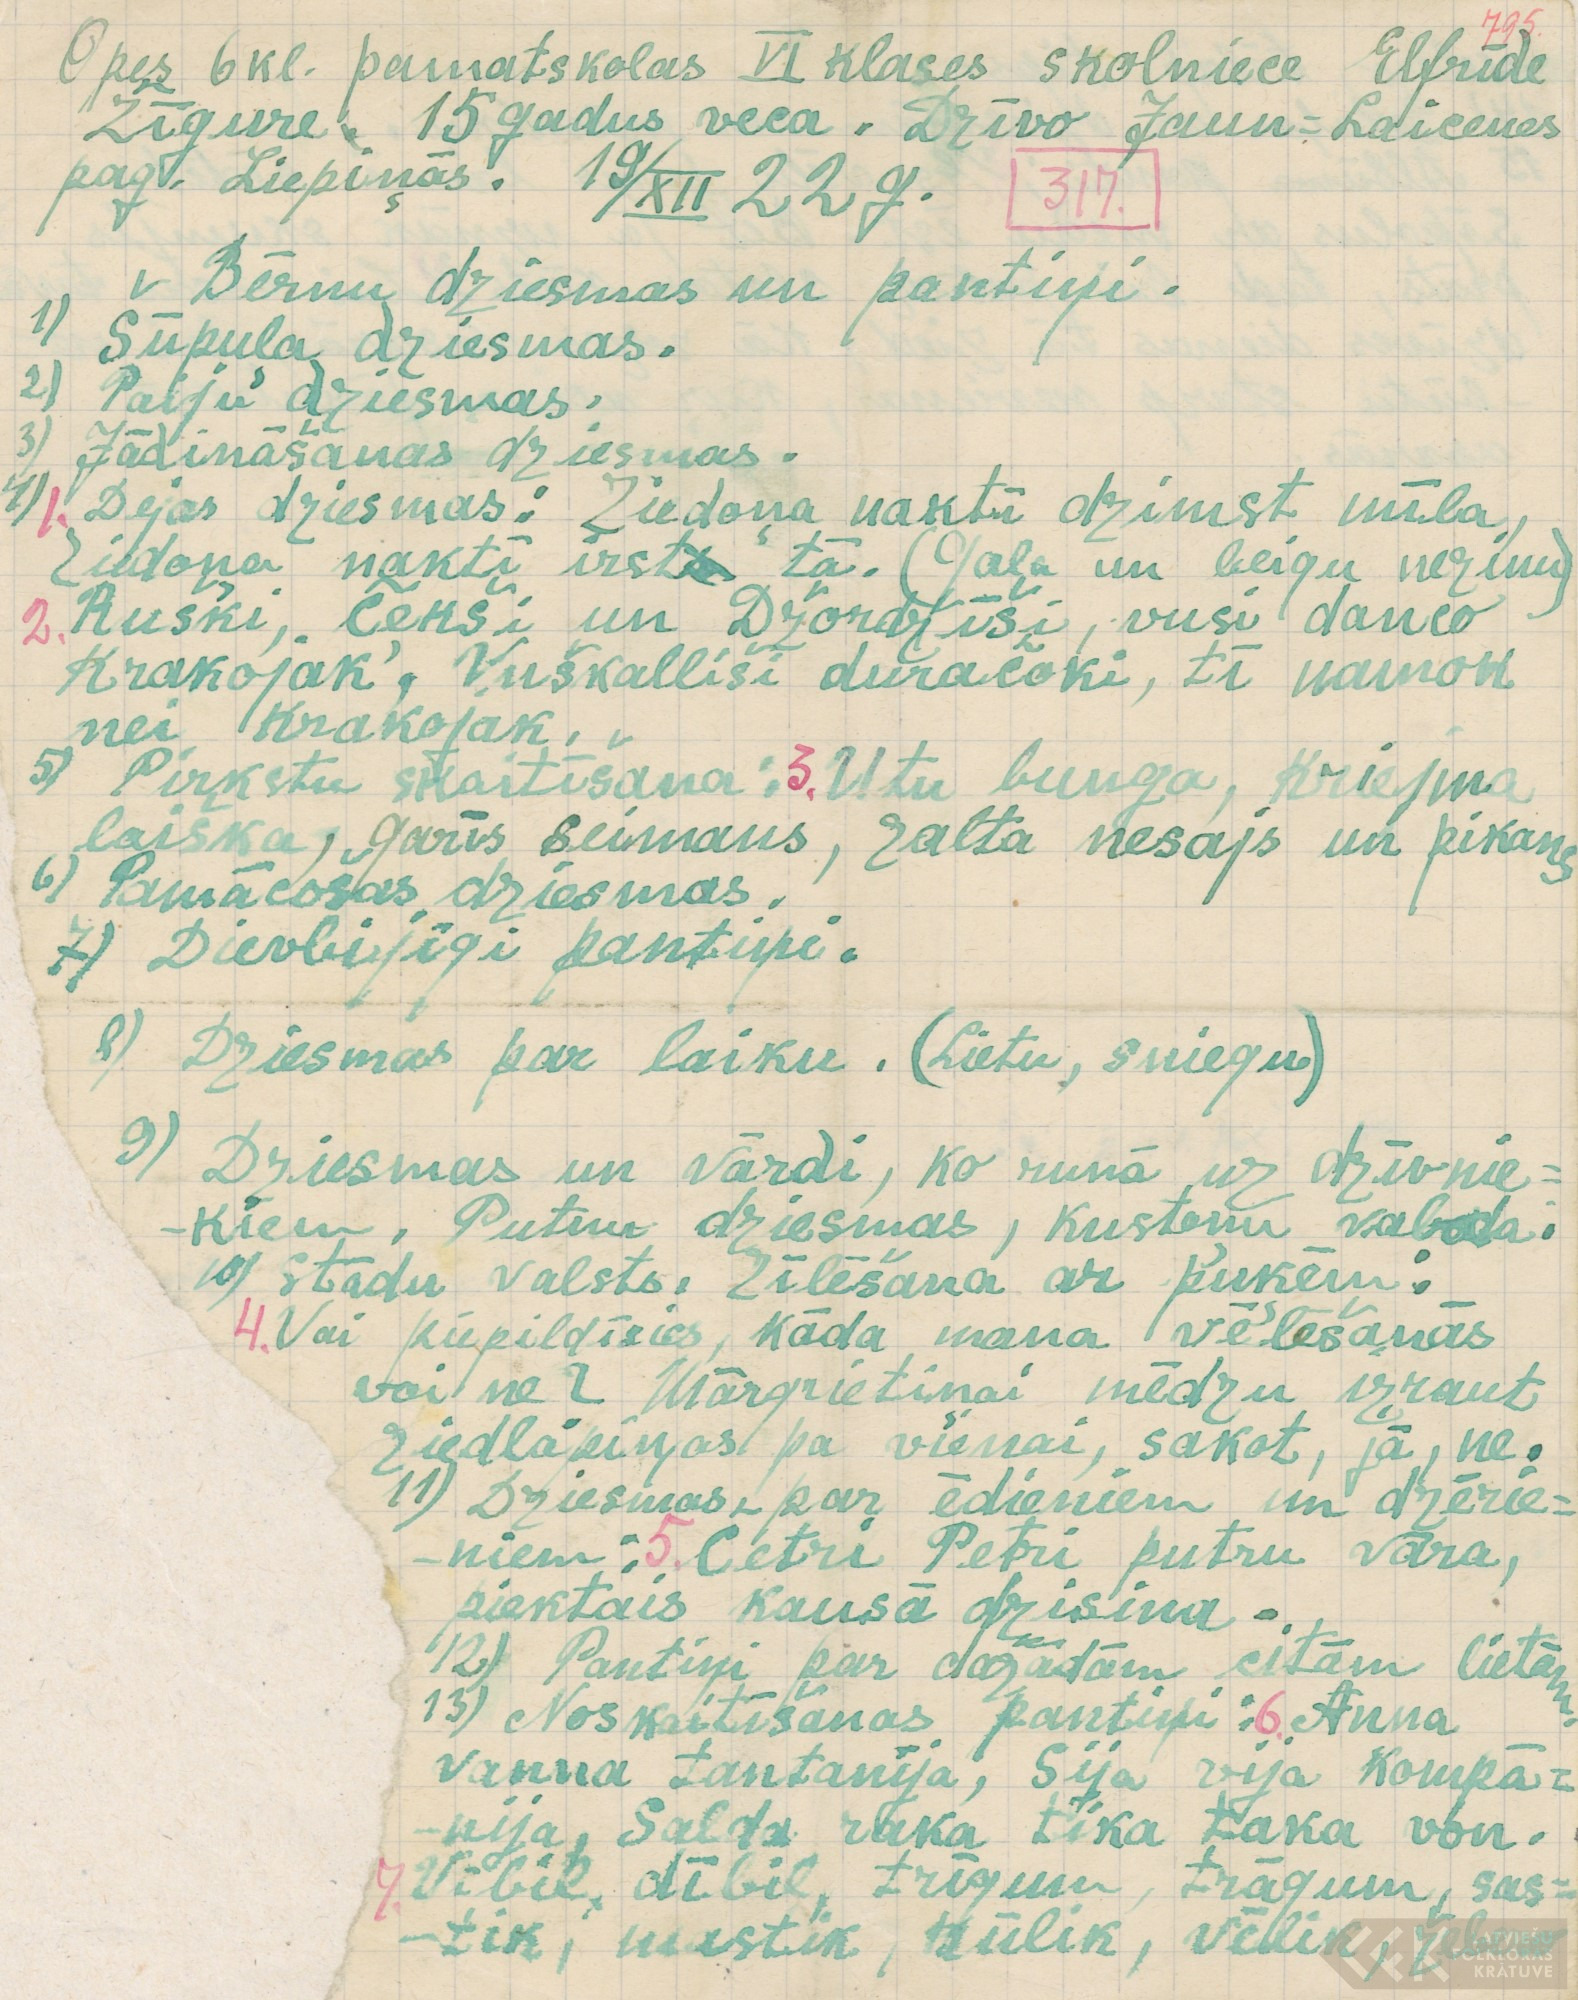 795.
Opes 6 kl. pamatskolas VI klases skolniece Elfrīde
Žīgure. 15 gadus veca. Dzīvo Jaun=Laicenes
pag. Liepiņās. 19/XII 22 g. 317.
Bērnu dziesmas un pantiņi.
1) Šūpuļa dziesmas.
2) Paiju dziesmas.
3) Jādināšanas dziesmas.
4) 1. Dejas dziesmas: Ziedoņa naktī dzimst mīla,
Ziedoņa naktī irst tā. (Gala un beigu nezinu)
2. Ruski, Čekši un Džordžīši, vusi danco
Krakojak', Vuškallīši duračoki, tī namok
nei Krakojak.
5) Pirkstu skaitīšana: 3. Utu bunga, Kriejma
laiška, garīs seimans, zalta nesajs un pikans
6) Pamācošas dziesmas.
7) Dievbijīgi pantiņi.
8) Dziesmas par laiku. (Lietu, sniegu)
9) Dziesmas un vārdi, ko runā uz dzīvnie=
-kiem. Putnu dziesmas, kustoņu valoda.
10) Stādu valsts. Zīlēšana ar puķēm:
4. Vai piepildīsies, kāda mana vēlēšanās
vai ne? Mārgrietiņai mēdzu izraut
ziedlapiņas pa vienai, sakot, jā, ne.
11) Dziesmas par ēdieniem un dzērie=
-niem: 5. Četri Petri putru vāra,
piektais kausā dzisina.
12) Pantiņi par dažādām citām lietām.
13) Noskaitīšanas pantiņi: 6. Anna
vanna tantanīja, Sija vija kompā=
-nija, Salda raka tika taka von.
7. Vībil, dībil, trīgum, trāgum, sas=
-tik, mustik, kūlik, vēlik,
LATVIEŠU
FOLKLORAS
KRĀTUVE